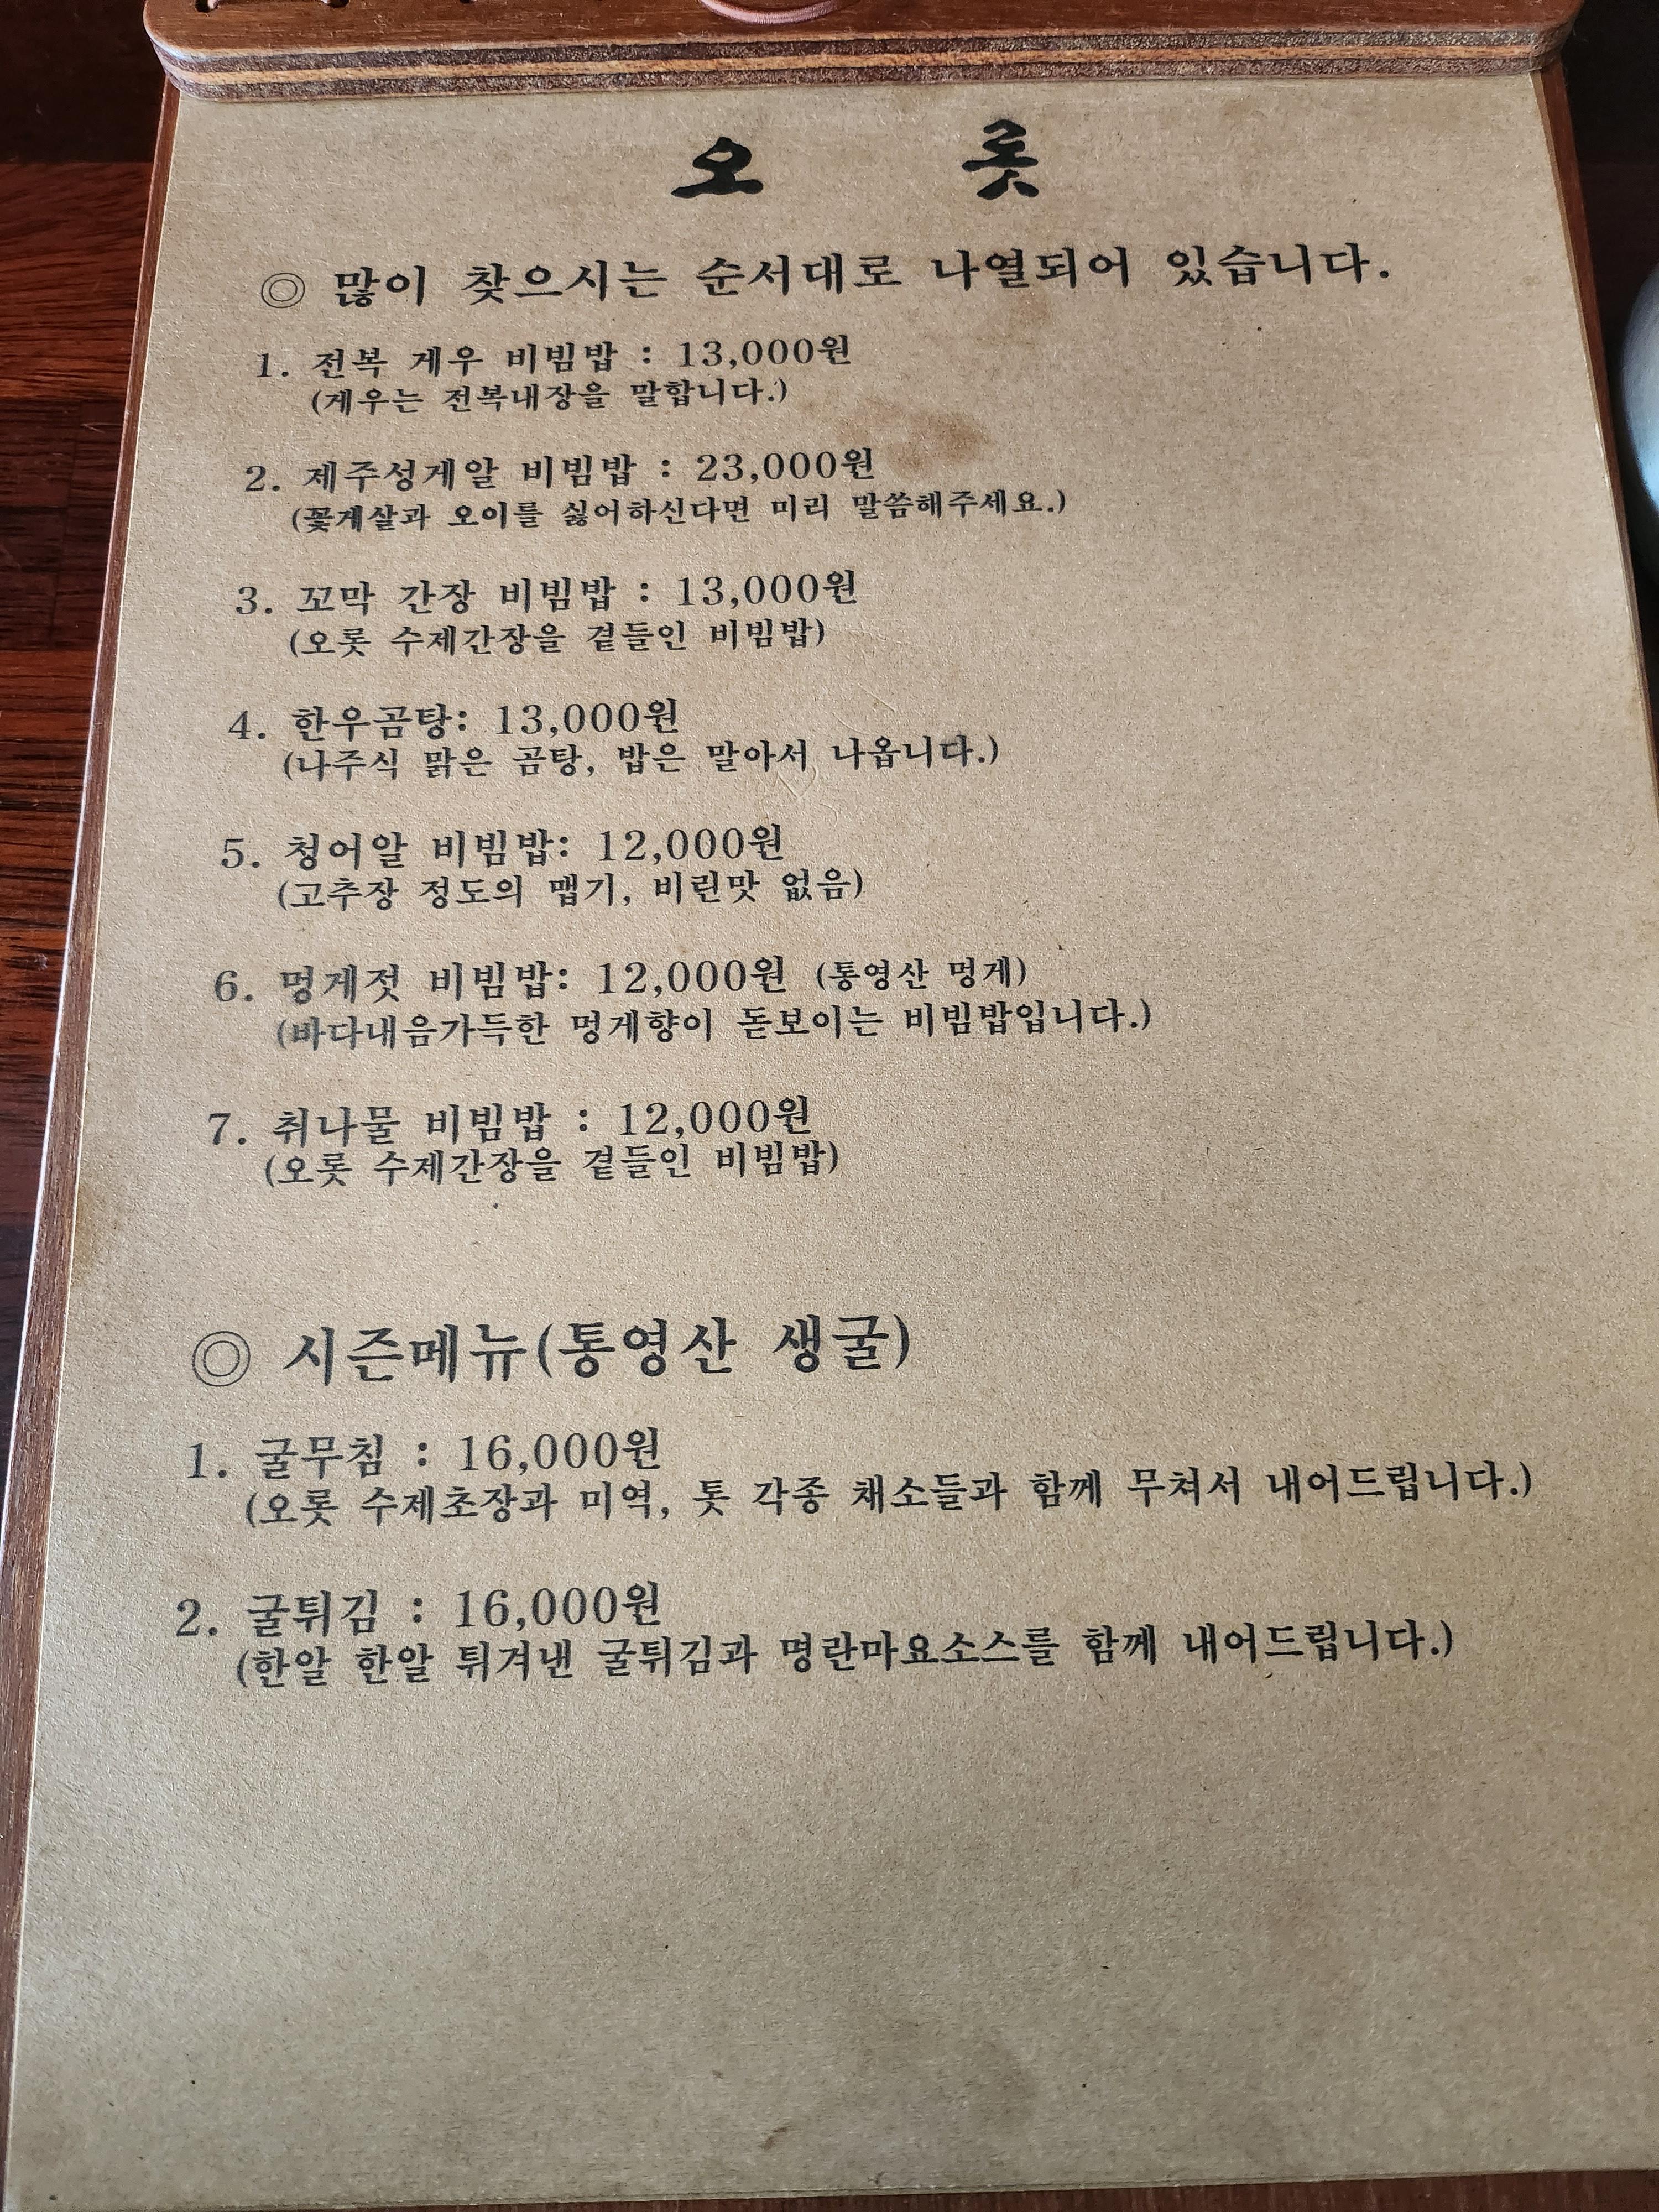 오 롯
◎ 많이 찾으시는 순서대로 나열되어 있습니다.
1. 전복 게우 비빔밥 : 13,000원
(게우는 전복내장을 말합니다.)
2. 제주성게알 비빔밥 : 23,000원
(꽃게살과 오이를 싫어하신다면 미리 말씀해주세요.)
3. 꼬막 간장 비빔밥 : 13,000원
(오롯 수제간장을 곁들인 비빔밥)
4. 한우곰탕: 13,000원
(나주식 맑은 곰탕, 밥은 말아서 나옵니다.)
5. 청어알 비빔밥: 12,000원
(고추장 정도의 맵기, 비린맛 없음)
6. 멍게젓 비빔밥: 12,000원 (통영산 멍게)
(바다내음가득한 멍게향이 돋보이는 비빔밥입니다.)
7. 취나물 비빔밥 : 12,000원
(오롯 수제간장을 곁들인 비빔밥)
◎ 시즌메뉴(통영산 생굴)
1. 굴무침 : 16,000원
(오롯 수제초장과 미역, 톳 각종 채소들과 함께 무쳐서 내어드립니다.)
2. 굴튀김 : 16,000원
(한알 한알 튀겨낸 굴튀김과 명란마요소스를 함께 내어드립니다.)